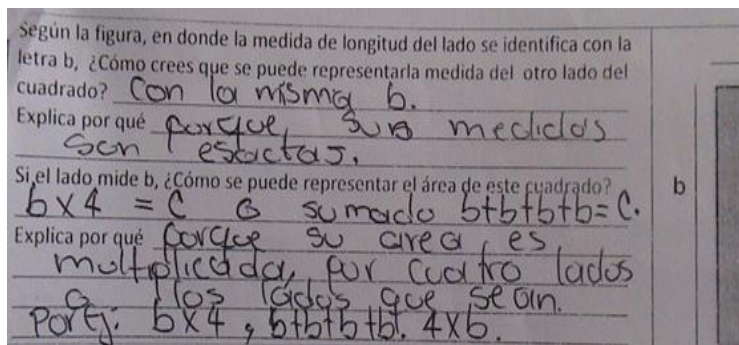 Según la figura, en donde la medida de longitud del lado se identifica con la
letra b, ¿Cómo crees que se puede representarla medida del otro lado del
cuadrado? Con la misma b.
Explica por qué porque sus medidas
son esactas.
Si el lado mide b, ¿Cómo se puede representar el área de este cuadrado?
b x 4 = C o sumado b+b+b+b= C.
Explica por qué porque su area es
multiplicada, por cuatro lados
o los lados que sean.
Por Ej: b x 4, b+b+b+b. 4xb.
b